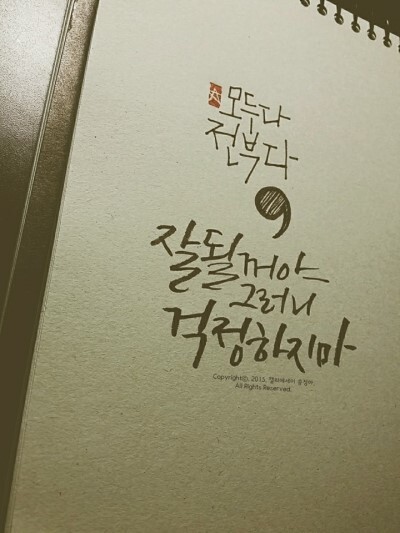 모두다
전부다
,
잘될꺼야
그러니
걱정하지마
Copyrightⓒ. 2015.
All Rights Reserved.